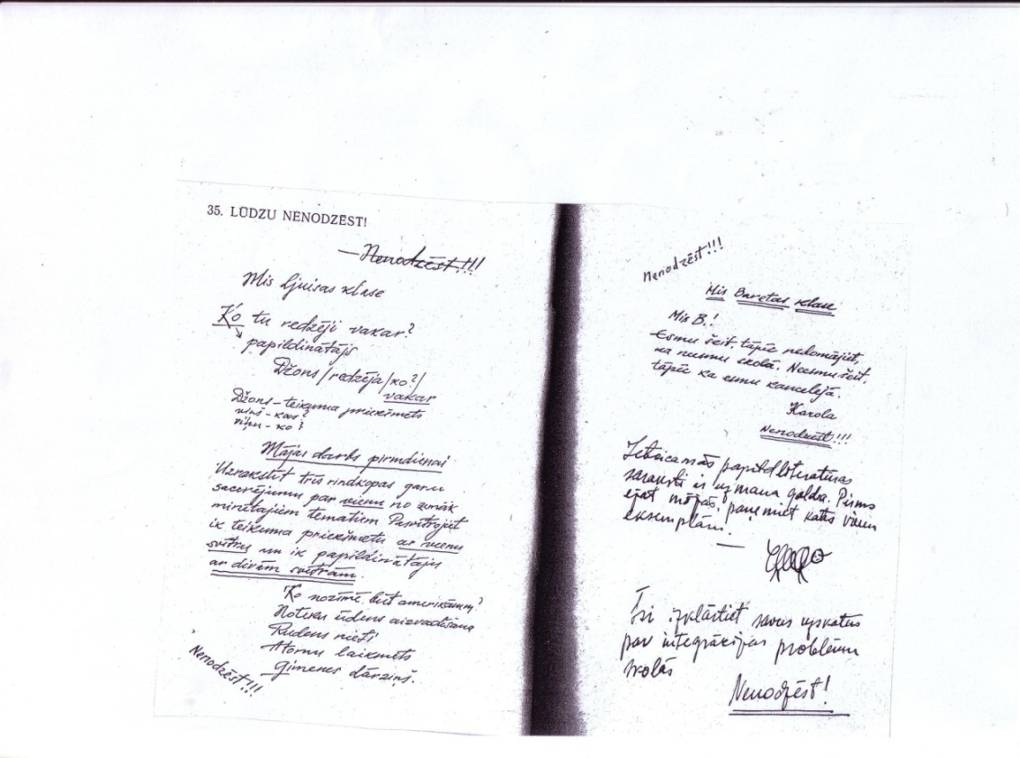 35. LŪDZU NENODZĒST!
— Nenodzēst!!!
Mis Ljuisas klase
Ko tu redzēji vakar?
papildinātājs
Džons/redzēja/ko?/
vakar
Džons - teikuma priekšmets
viņš - kas?
viņu - ko?
Mājas darbs pirmdienai
Uzrakstīt trīs rindkopas garu
sacerējumu par vienu no zemāk
minētajiem tematiem Pasvītrojiet
ik teikuma priekšmetu ar vienu
svītru un ik papildinātāju
ar divām svītrām.
Ko nozīmē būt amerikānim?
Noteku ūdens aizvadīšana
Rudens rieti!
Atomu laikmets
Ģimenes dārziņš.
Nenodzēst!!!
Nenodzēst!!!
Mis Baretas klase
Mis B.!
Esmu šeit, tāpēc nedomājiet,
ka neesmu skolā. Neesmu šeit,
tāpēc ka esmu kancelejā.
Karola
Nenodzēst!!!
Ieteicamās papildliteratūras
saraksti ir uz mana galda. Pirms
ejat mājās, paņemiet katrs vienu
eksemplāru.
Īsi izklāstiet savus uzskatus
par integrācijas problēmu
skolās
Nenodzēst!